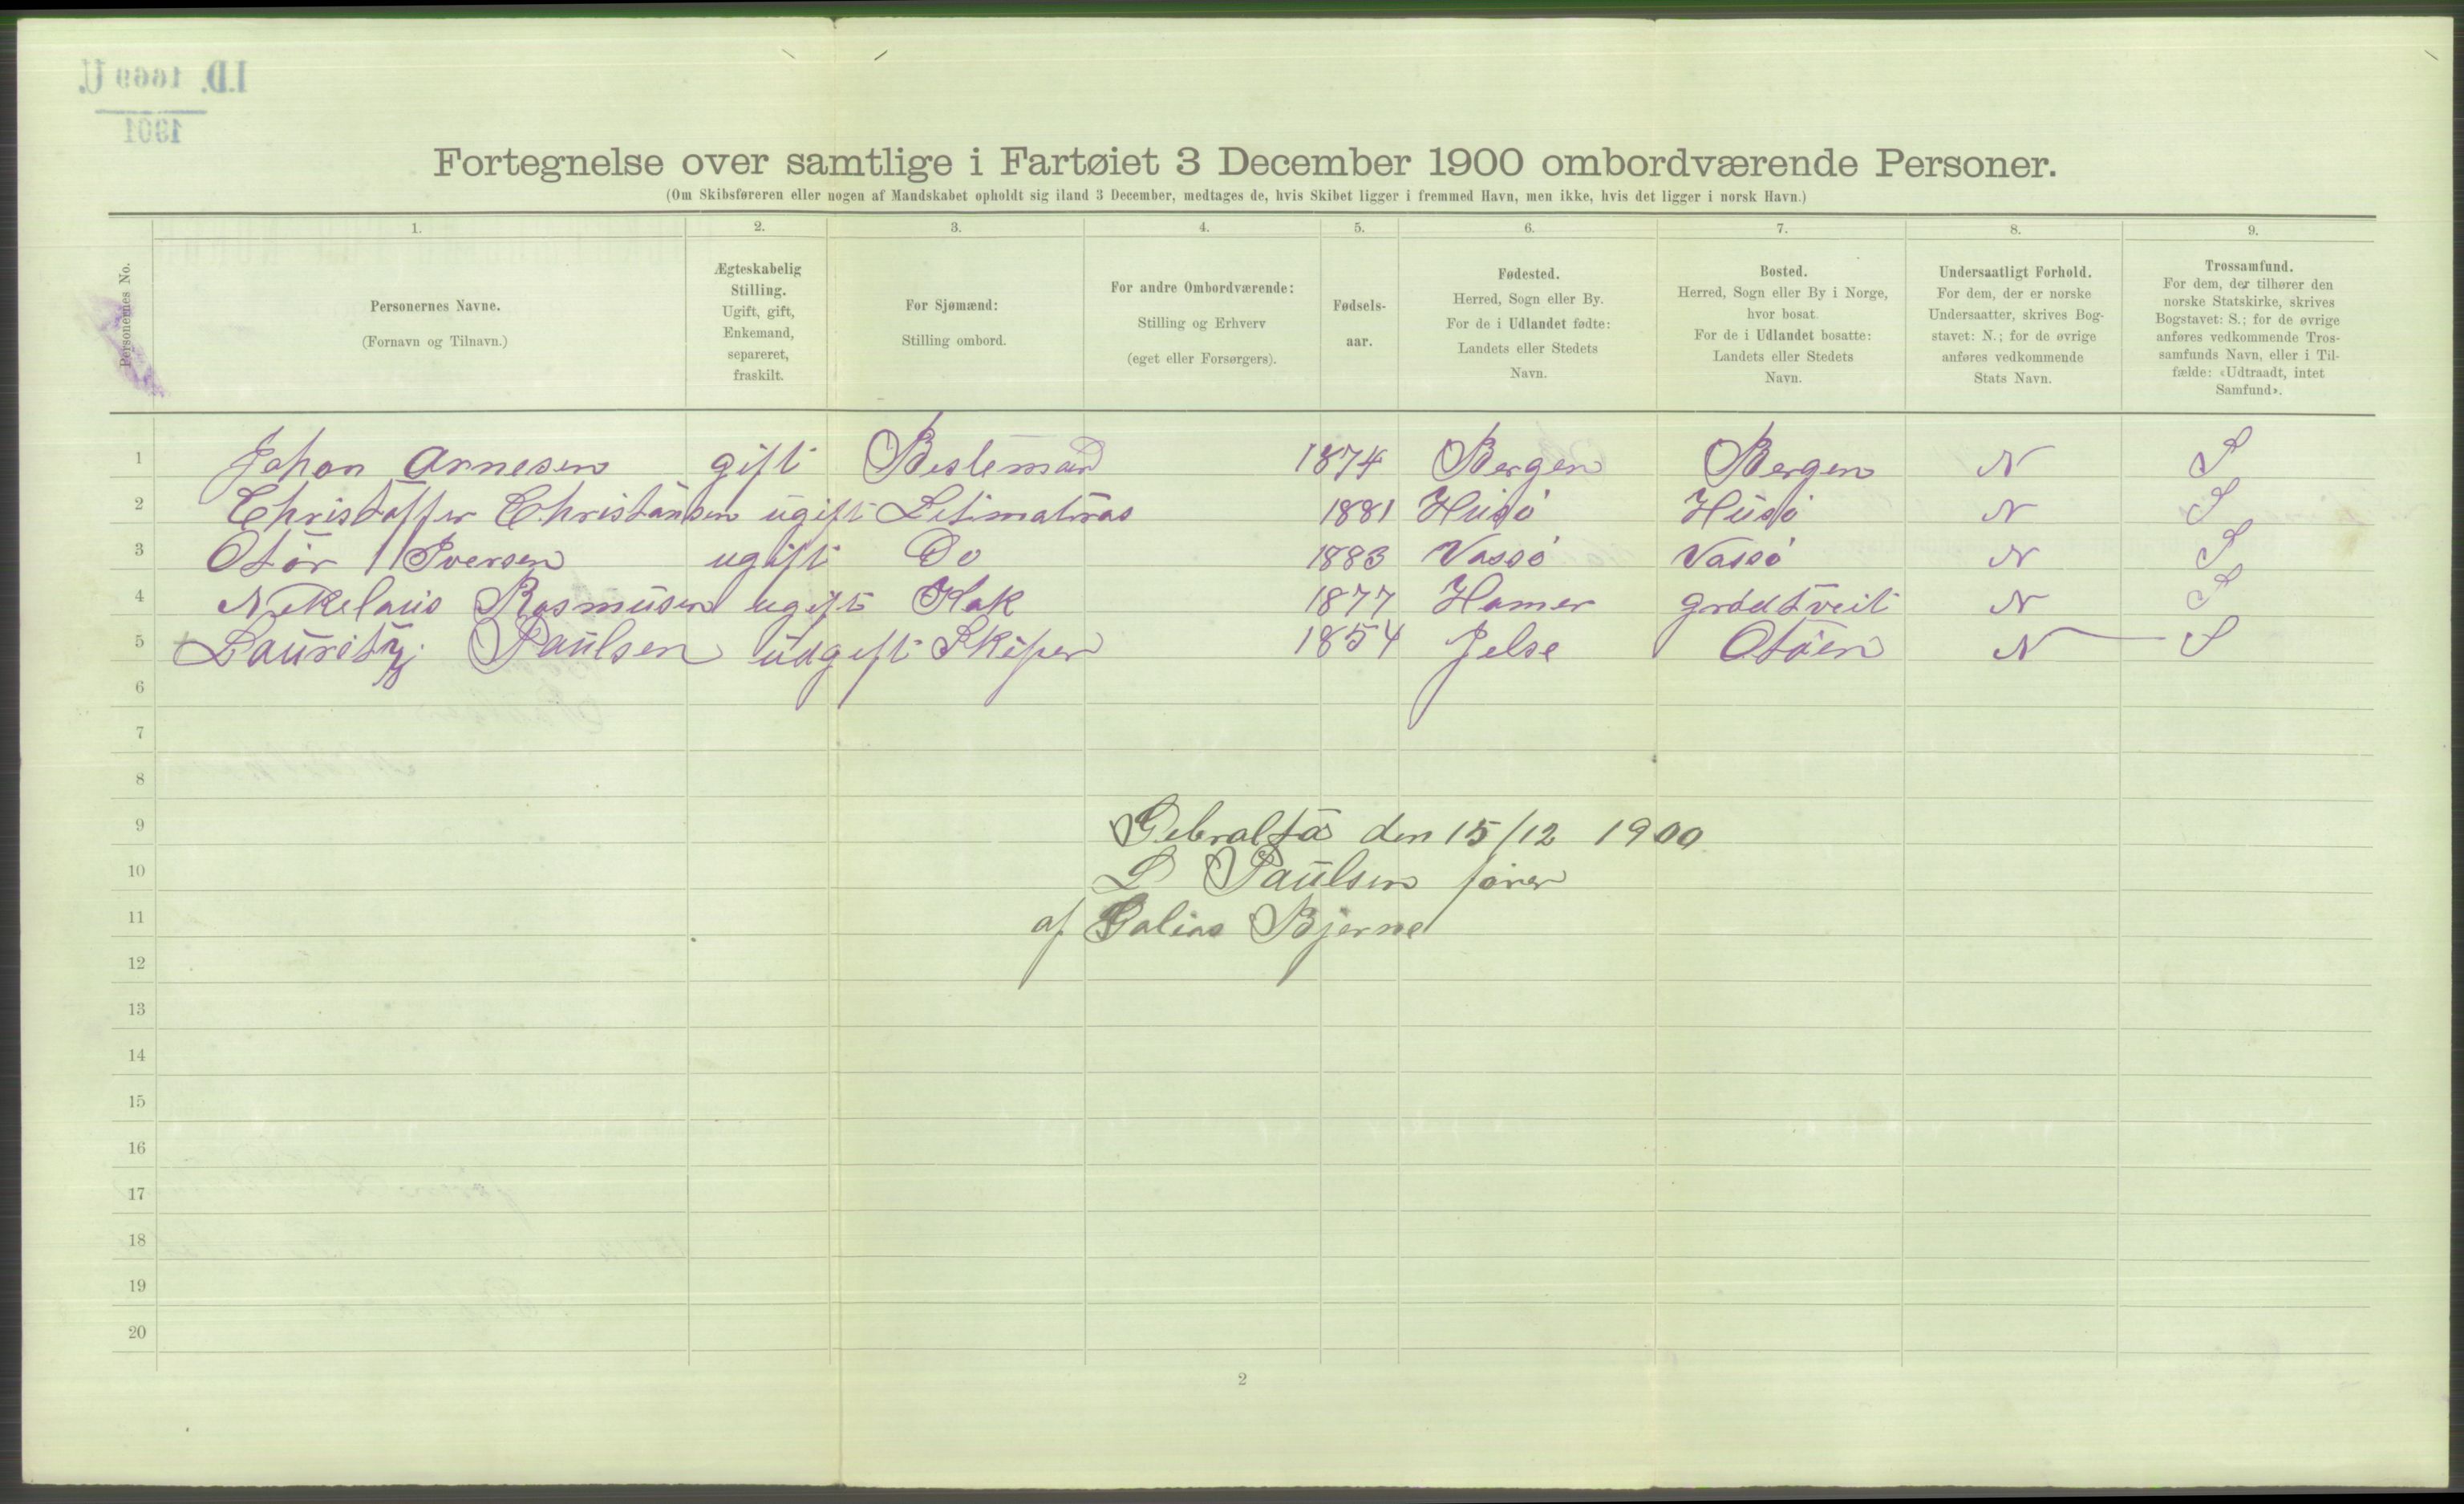 I.D. 1669 U.
1901
Fortegnelse over samtlige i Fartøiet 3 December 1900 ombordværende Personer.
(Om Skibsføreren eller nogen af Mandskabet opholdt sig iland 3 December, medtages de, hvis Skibet ligger i fremmed Havn, men ikke, hvis det ligger i norsk Havn.)
Personernes No.
1. 2. 3. 4. 5. 6. 7. 8. 9.
Personernes Navne.
(Fornavn og Tilnavn.)
Ægteskabelig
Stilling.
Ugift, gift,
Enkemand,
separeret,
fraskilt.
For Sjømænd:
Stilling ombord.
For andre Ombordværende:
Stilling og Erhverv
(eget eller Forsørgers).
Fødsels-
aar.
Fødested.
Herred, Sogn eller By.
For de i Udlandet fødte:
Landets eller Stedets
Navn.
Bosted.
Herred, Sogn eller By i Norge,
hvor bosat.
For de i Udlandet bosatte:
Landets eller Stedets
Navn.
Undersaatligt Forhold.
For dem, der er norske
Undersaatter, skrives Bog-
stavet: N.; for de øvrige
anføres vedkommende
Stats Navn.
Trossamfund.
For dem, der tilhører den
norske Statskirke, skrives
Bogstavet: S.; for de øvrige
anføres vedkommende Tros-
samfunds Navn, eller i Til-
fælde: «Udtraadt, intet
Samfund».
1 Johan Arnesen gift Bestemand 1874 Bergen Bergen N S
2 Christoffer Christansen ugift Letimatras 1881 Husö Husö N S
3 Otör Iversen ugift Do 1883 Vassö Vassö N S
4 Nikelaus Rasmusen ugift Kok 1877 Hamer grödtveit N S
5 Lauritz Paulsen udgift Skiper 1854 Jelse Otöen N S
6
7
8
9 Gebralta den 15/12 1900
10 L Paulsen förer
11 af Galias Bjerne
12
13
14
15
16
17
18
19
20
2